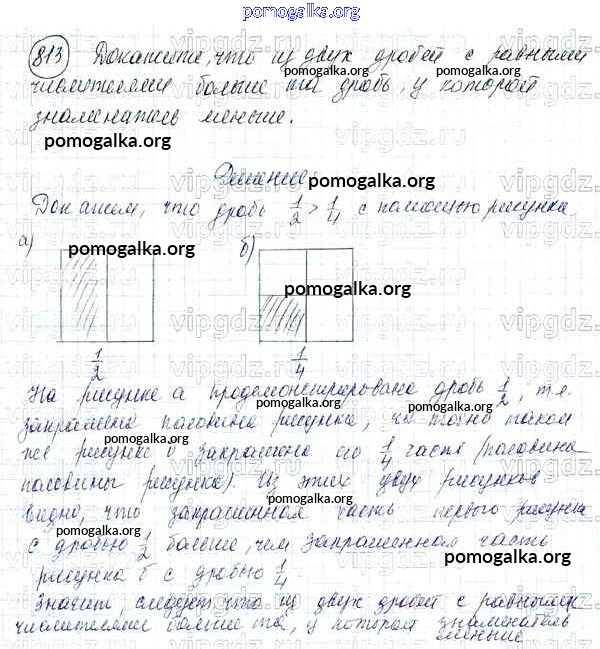 pomogalka.org
813 Докажите, что из двух дробей с равными
числителями больше та дробь, у которой
знаменатель меньше.
pomogalka.org
Решение.
pomogalka.org
Докажем, что дробь 1/2 > 1/4 с помощью рисунка
а) pomogalka.org б)
pomogalka.org
1/2 1/4
На рисунке а продемонстрирована дробь 1/2, т.е.
pomogalka.org pomogalka.org
закрашена половина рисунка, на точно таком
же рисунке б закрашена 1/4 часть (половина
половины рисунка). Из этих двух рисунков
pomogalka.org
видно, что закрашенная часть первого рисунка
pomogalka.org
с дробью 1/2 больше, чем закрашенная часть
pomogalka.org
рисунка б с дробью 1/4.
Значит, следует, что из двух дробей с равными
числителями больше та, у которой знаменатель
меньше